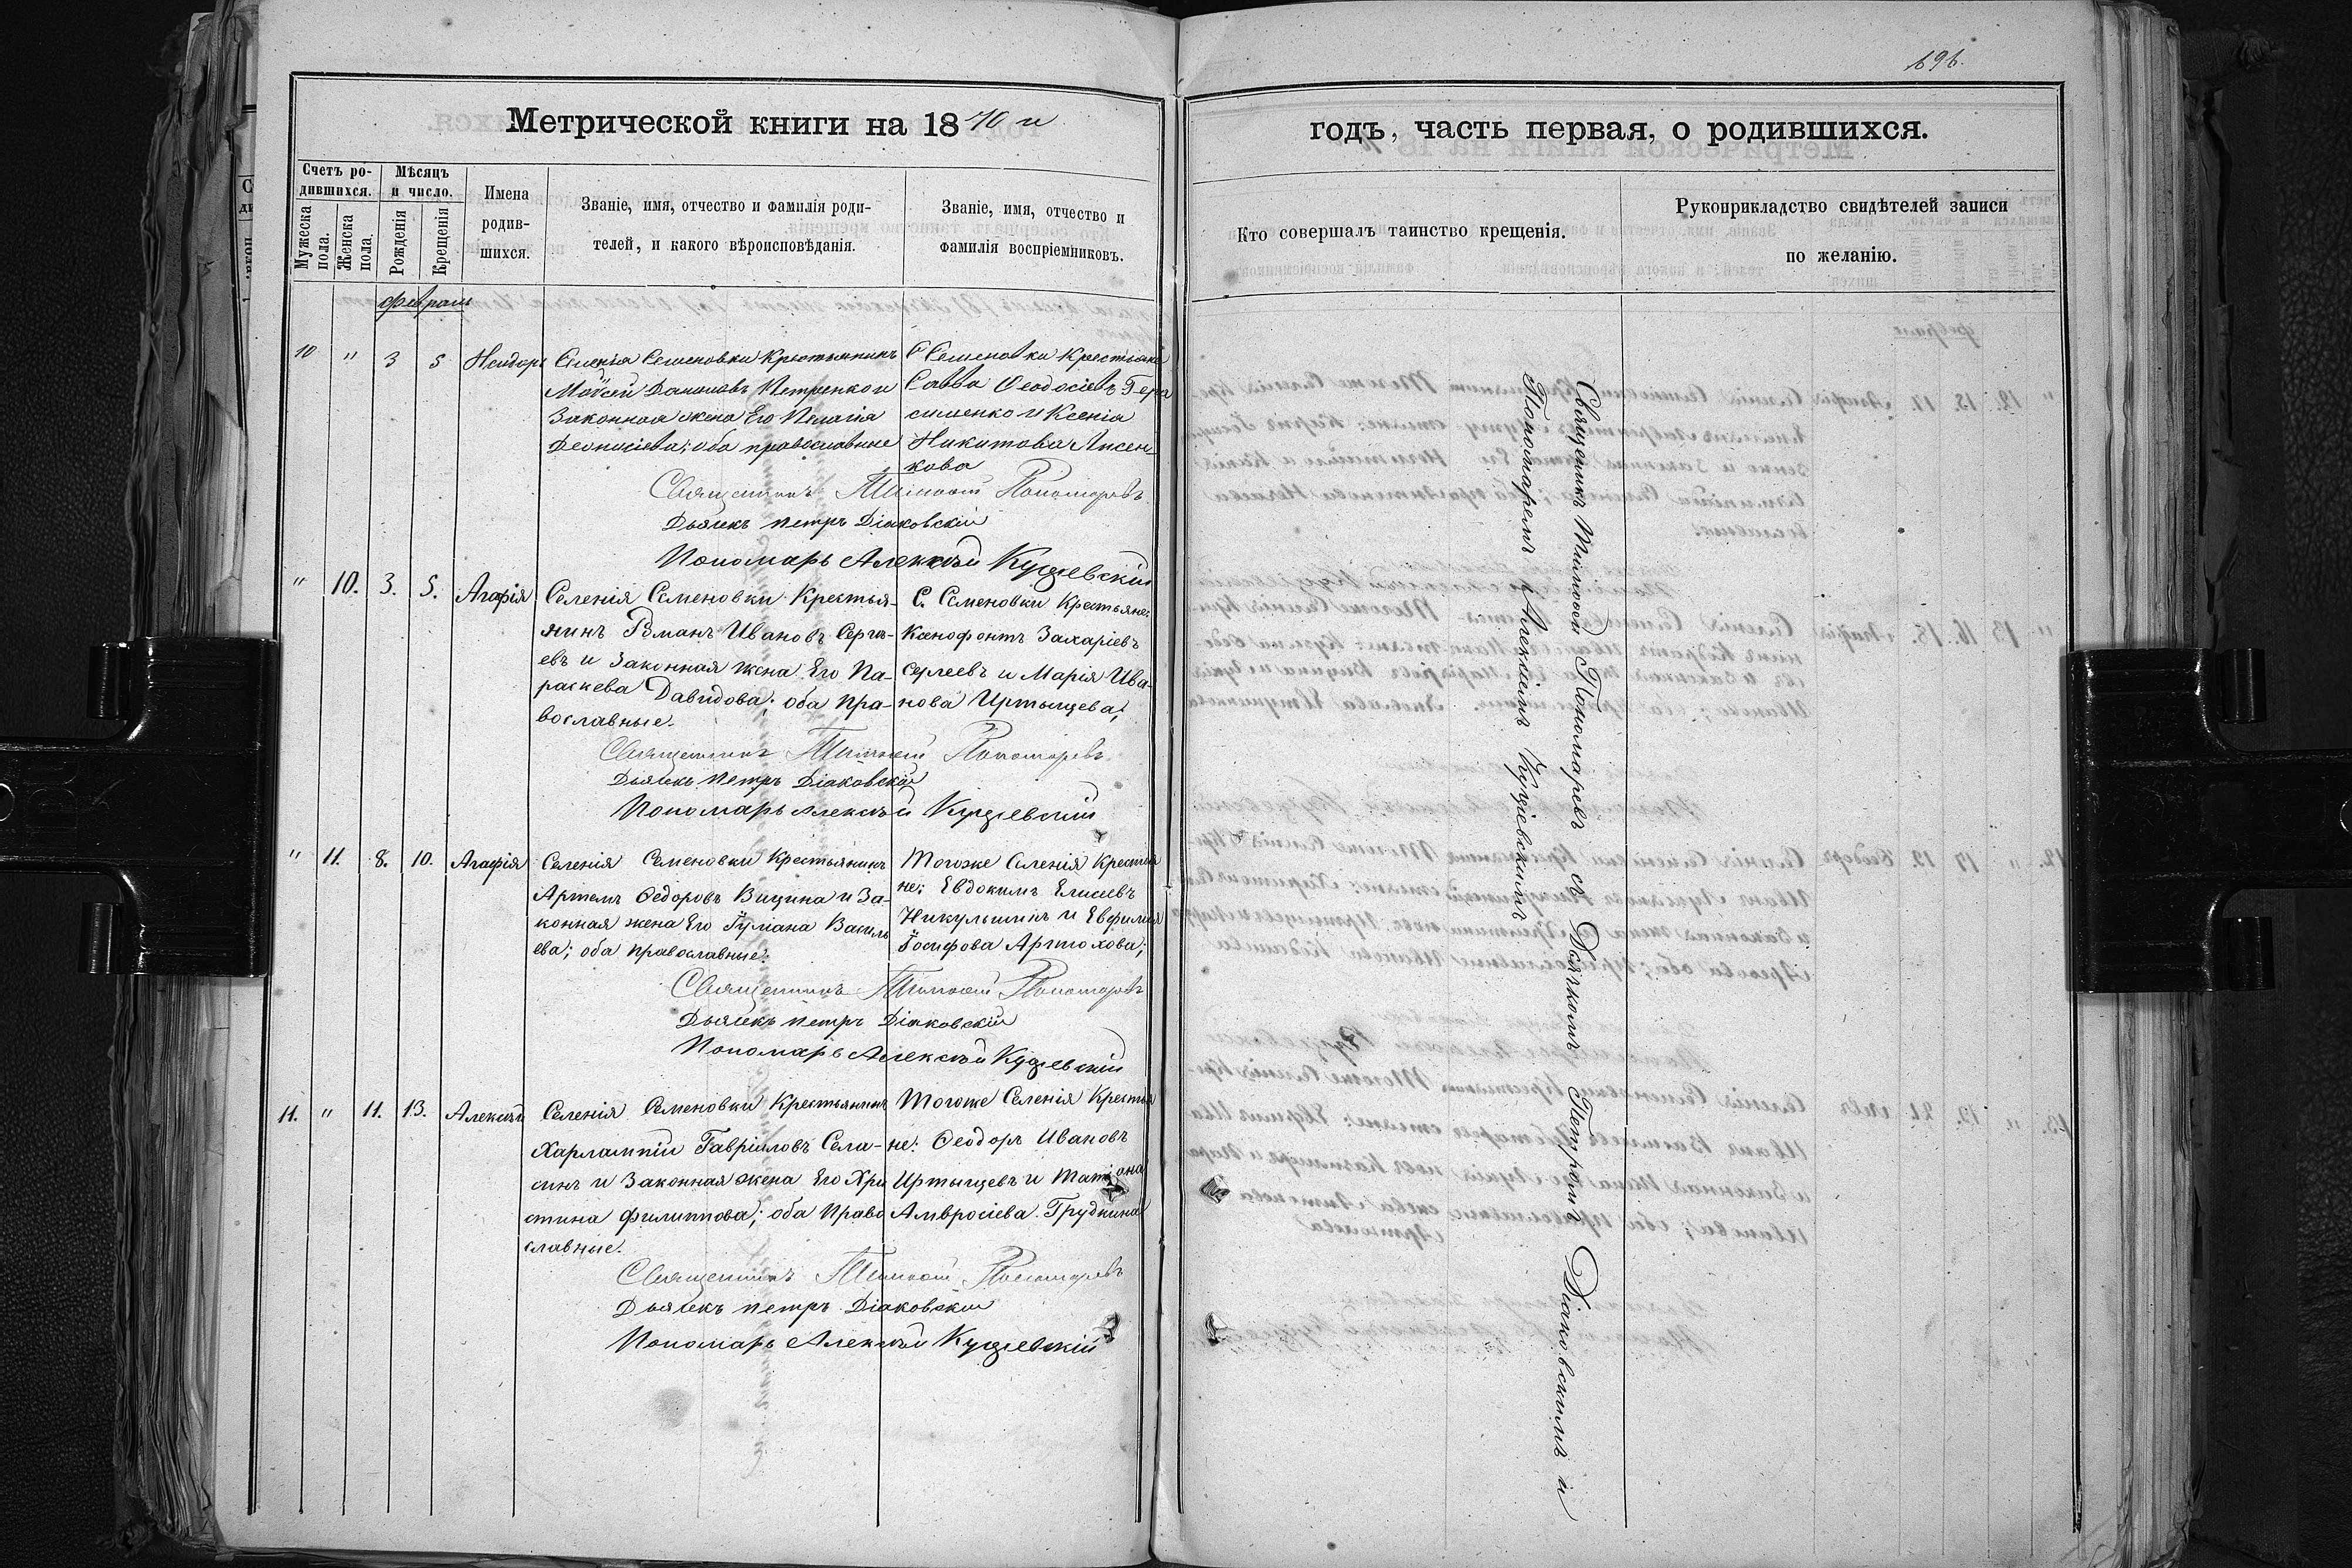 696.
Метрической книги на 1870 и
годъ, часть первая, о родившихся.
Счетъ родившихся.
Мужеска пола.
Женска пола.
Мѣсяцъ и число.
Рожденія
Крещенія
Имена родив-
шихся.
Званіе, имя, отчество и фамилія роди-
телей, и какого вѣроисповѣданія.
Званіе, имя, отчество и
фамилія воспріемниковъ.
Кто совершалъ таинство крещенія.
Рукоприкладство свидѣтелей записи
по желанію.
Февраль
10 " 3 5 Исидоръ
Селенія Семеновки Крестьянинъ
Моѵсей Даниловъ Петренко и
Законная жена Его Пелагія
Деонисіева; оба православные
С Семеновки Крестьяне
Савва Ѳеодосіевъ Гера
сименко и Ксенія
Никитова Лисен-
кова
Священникъ Тимоѳей Пономаревъ
Дьячекъ петръ Діаковскій
Пономарь Алексѣй Кущевскій
" 10. 3. 5. Агафія
Селенія Семеновки Крестья-
нинъ Романъ Ивановъ Серге-
евъ и Законная жена Его Па-
раскева Давидова; оба пра-
вославные.
С. Семеновки Крестьяне:
Ксенофонтъ Захаріевъ
Сергеевъ и Марія Ива-
нова Иртыщева;
Священникъ Тимоѳей Пономаревъ
Дьячекъ петръ Діаковскій
Пономарь Алексѣй Кущевскій
" 11. 8. 10. Агафія
Селенія Семеновки Крестьянинъ
Артемъ Ѳедоровъ Вицина и За-
конная жена Его Іуліана Василь
ева; оба православные.
Тогоже Селенія Крестья
не; Евдокимъ Елисеевъ
Никульшинъ и Евфимія
Іосифова Артюхова;
Священникъ Тимоѳей Пономаревъ
Дьячекъ петръ Діаковскій
Пономарь Алексѣй Кущевскій
11. " 11. 13. Алексѣй
Селенія Семеновки Крестьянинъ
Харлампій Гавріиловъ Села-
синъ и Законная жена Его Хри
стина Филиппова; оба Право
славные.
Тогоже Селенія Крестья
не: Ѳеодоръ Ивановъ
Иртыщевъ и Татіана
Амвросіева Груднина
Священникъ Тимоѳей Пономаревъ
Дьячекъ петръ Діаковскій
Пономарь Алексѣй Кущевскій
Священникъ Тимоѳей Пономаревъ съ Дьячкомъ Петромъ Діаковскимъ и
Пономаремъ Алексѣемъ Кущевскимъ